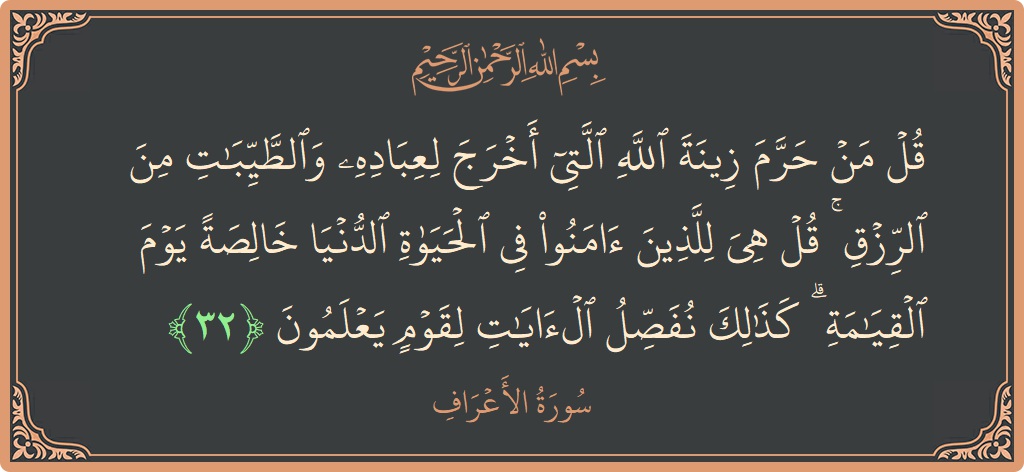 بِسْمِ اللَّهِ الرَّحْمَٰنِ الرَّحِيمِ
قُلۡ مَنۡ حَرَّمَ زِينَةَ ٱللَّهِ ٱلَّتِيٓ أَخۡرَجَ لِعِبَادِهِۦ وَٱلطَّيِّبَٰتِ مِنَ
ٱلرِّزۡقِۚ قُلۡ هِيَ لِلَّذِينَ ءَامَنُواْ فِي ٱلۡحَيَوٰةِ ٱلدُّنۡيَا خَالِصَةٗ يَوۡمَ
ٱلۡقِيَٰمَةِۗ كَذَٰلِكَ نُفَصِّلُ ٱلۡأٓيَٰتِ لِقَوۡمٖ يَعۡلَمُونَ ﴿٣٢﴾
سُورَةُ الأَعۡرَافِ